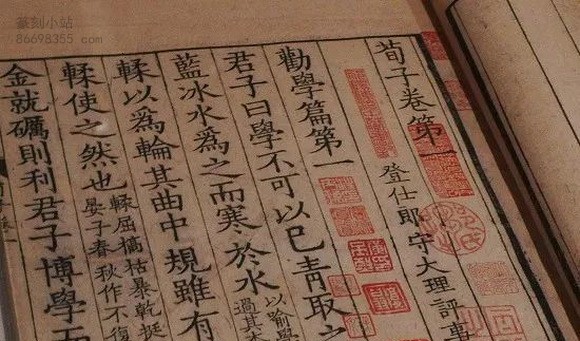 荀子卷第一
登仕郎守大理評事
勸學篇第一
君子曰學不可以已青取之
藍冰水爲之而寒於水
以喻學
過其本
輮以爲輪其曲中規雖有
輮使之然也
輮屈槁枯暴乾挺
晏子春秋作不復
金就礪則利君子博學而
篆刻小站
86698355 .com